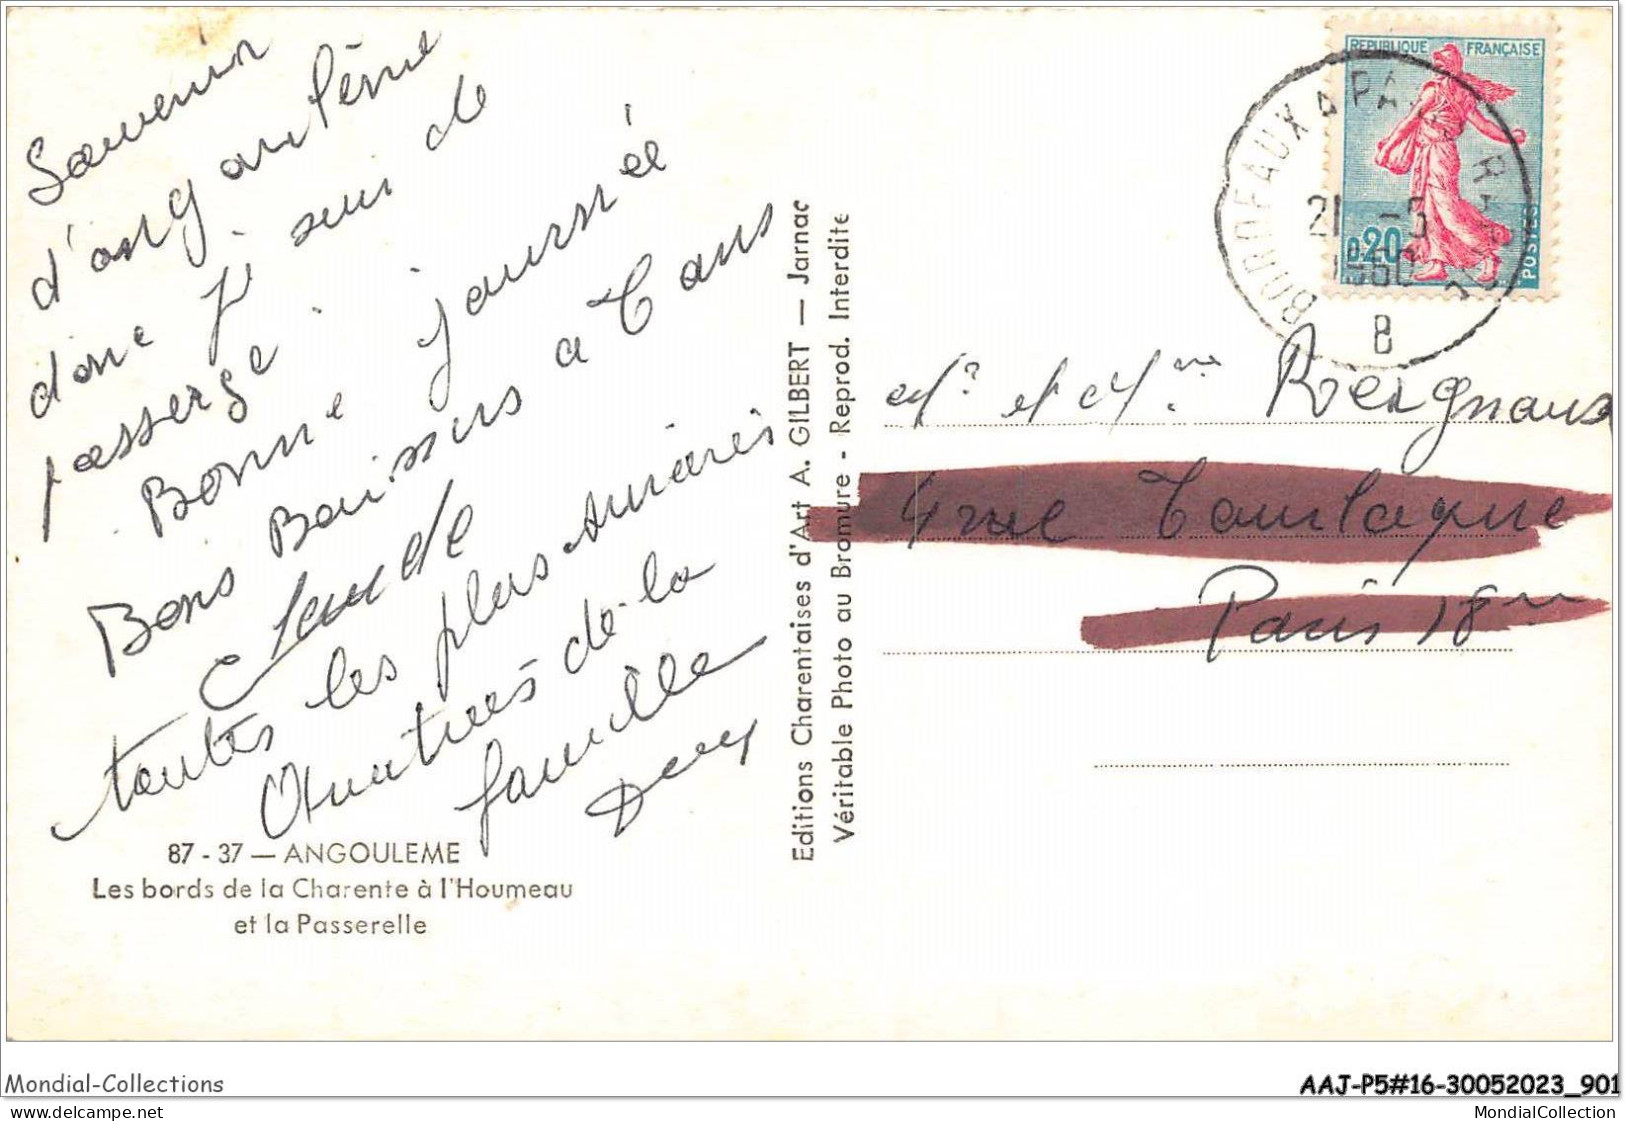 Souvenir
d'angoulême
donc je suis de
passage
Bonne journée
Bons Baisers a Tous
Claude
toutes les plus sincères
de la
famille
87 - 37 — ANGOULEME
Les bords de la Charente à l'Houmeau
et la Passerelle
Editions Charentaises d'Art A. GILBERT — Jarnac
Véritable Photo au Bromure - Reprod. Interdite
REPUBLIQUE FRANÇAISE
0.20
POSTES
BORDEAUX A PARIS
21 -5
1960
B
Mr et Mme
4 rue
Paris 18me
Mondial-Collections
AAJ-P5#16-30052023_901
MondialCollection